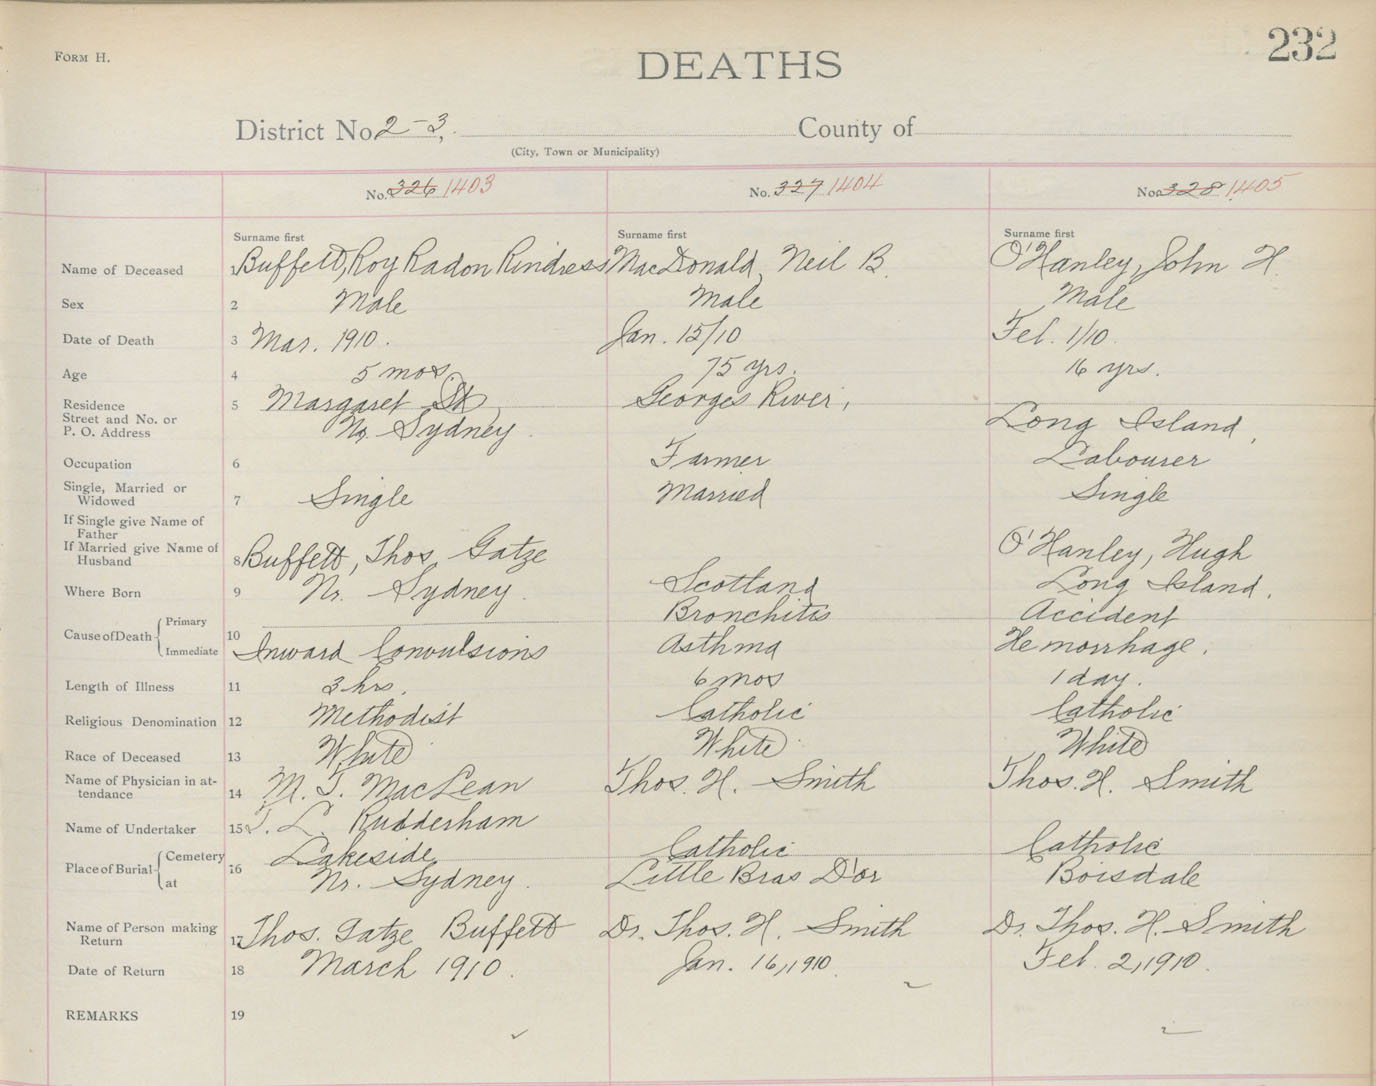 FORM H.
DEATHS
232
District No. 2-3, County of
(City, Town or Municipality)
No. 326 1403 No. 327 1404 No. 328 1405
Surname first Surname first Surname first
Name of Deceased 1 Buffett, Roy Radon Kindress MacDonald, Neil B. O'Hanley, John H.
Sex 2 Male Male Male
Date of Death 3 Mar. 1910. Jan. 15/10 Feb. 1/10.
Age 4 5 mos. 75 yrs. 16 yrs.
Residence 5 Margaret St., Georges River,
Street and No. or
P. O. Address No. Sydney. Long Island,
Occupation 6 Farmer Labourer
Single, Married or
Widowed 7 Single Married Single
If Single give Name of
Father
If Married give Name of
Husband 8 Buffett, Thos. Gatze O'Hanley, Hugh
Where Born 9 Nr. Sydney. Scotland Long Island.
Cause of Death Primary 10 Bronchitis Accident
Immediate Inward Convulsions Asthma Hemorrhage.
Length of Illness 11 3 hrs. 6 mos 1 day.
Religious Denomination 12 Methodist Catholic Catholic
Race of Deceased 13 White White White
Name of Physician in at-
tendance 14 M. T. MacLean Thos. H. Smith Thos. H. Smith
Name of Undertaker 15 L. Rudderham
Place of Burial Cemetery 16 Lakeside Catholic Catholic
at Nr. Sydney. Little Bras D'or Boisdale
Name of Person making
Return 17 Thos. Gatze Buffett Dr. Thos. H. Smith Dr. Thos. H. Smith
Date of Return 18 March 1910. Jan. 16, 1910. Feb. 2, 1910.
REMARKS 19